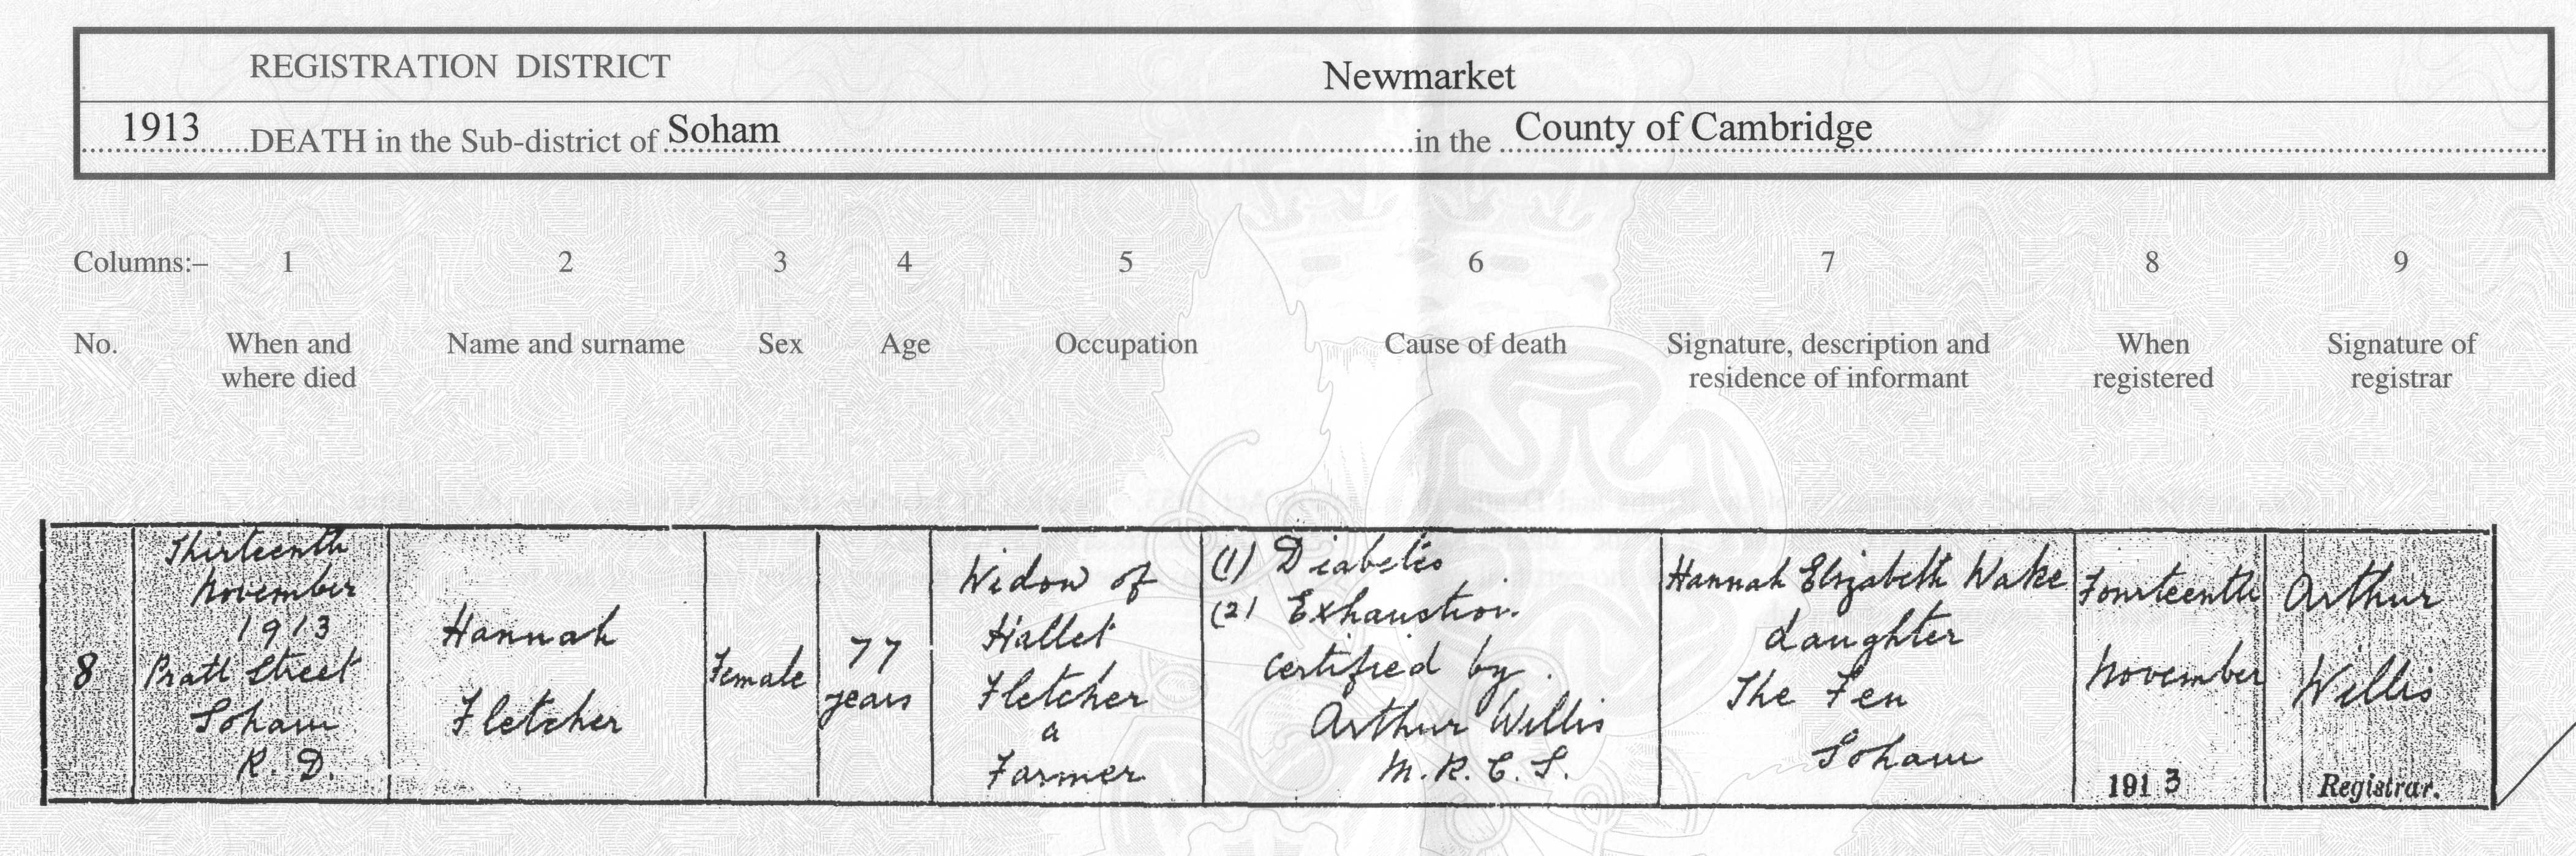 REGISTRATION DISTRICT Newmarket
1913 DEATH in the Sub-district of Soham in the County of Cambridge
Columns:– 1 2 3 4 5 6 7 8 9
No. When and where died Name and surname Sex Age Occupation Cause of death Signature, description and residence of informant When registered Signature of registrar
8
Thirteenth
November
1913
Pratt Street
Soham
R. D.
Hannah
Fletcher
Female
77
years
Widow of
Hallet
Fletcher
a
Farmer
(1) Diabetes
(2) Exhaustion.
Certified by
Arthur Willis
M. R. C. S.
Hannah Elizabeth Wake
daughter
The Fen
Soham
Fourteenth
November
1913
Arthur
Willis
Registrar.